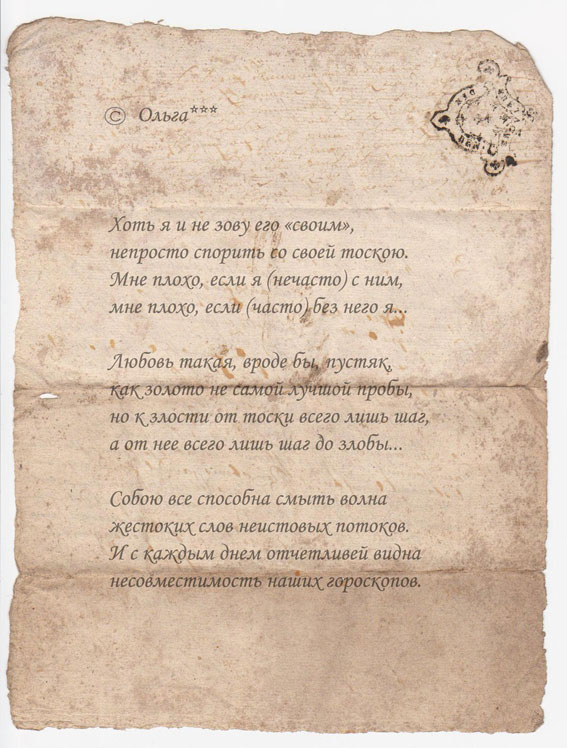 © Ольга***
Хоть я и не зову его «своим»,
непросто спорить со своей тоскою.
Мне плохо, если я (нечасто) с ним,
мне плохо, если (часто) без него я...
Любовь такая, вроде бы, пустяк,
как золото не самой лучшой пробы,
но к злости от тоски всего лишь шаг,
а от нее всего лишь шаг до злобы...
Собою все способна смыть волна
жестоких слов неистовых потоков.
И с каждым днем отчетливей видна
несовместимость наших гороскопов.